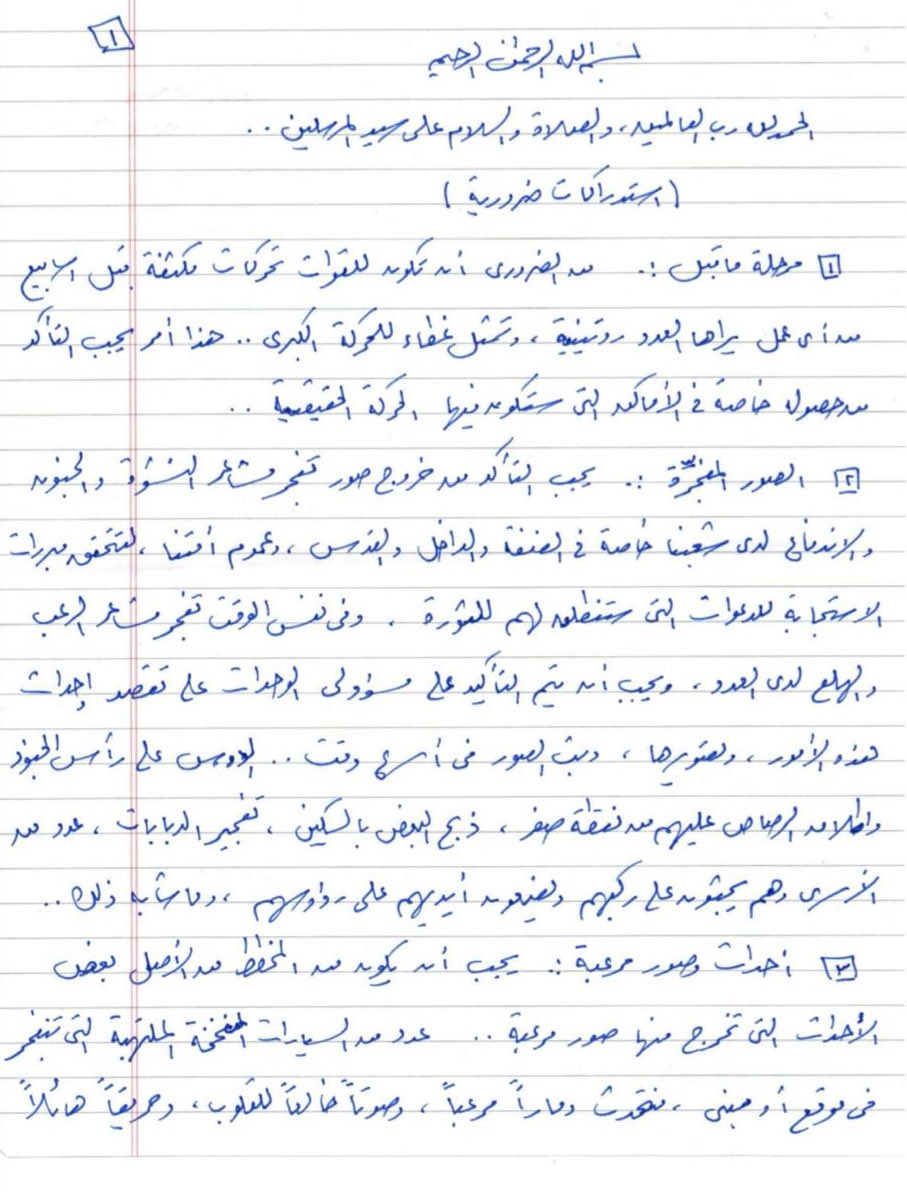 ١
بسم الله الرحمن الرحيم
الحمد لله رب العالمين، والصلاة والسلام على سيد المرسلين ..
(استدراكات ضرورية)
١ مرحلة ما قبل :. من الضروري أن تكون للقوات تحركات مكثفة قبل أسابيع
من أي عمل يراها العدو روتينية، وتمثل غطاء للحركة الكبرى .. هذا أمر يجب التأكد
من حصوله خاصة في الأماكن التي ستكون فيها الحركة الحقيقية ..
٢ الصور المفجّرة :. يجب التأكد من خروج صور تفجر مشاعر النشوة والجنون
والاندفاع لدى شعبنا خاصة في الضفة والداخل والقدس، وعموم أمتنا، لتتحقق مبررات
الاستجابة للدعوات التي ستنطلق لهم للثورة، وفي نفس الوقت تفجر مشاعر الرعب
والهلع لدى العدو، ويجب أن يتم التأكيد على مسؤولي الوحدات على تقصد إحداث
هذه الأمور، وتصويرها، وبث الصور في أسرع وقت .. الدوس على رأس الجنود
وإطلاق الرصاص عليهم من نقطة صفر، ذبح البعض بالسكين، تفجير الدبابات، عدد من
الأسرى وهم يجثون على ركبهم ويضعون أيديهم على رؤوسهم، وما شابه ذلك ..
٣ أحداث وصور مرعبة :. يجب أن يكون من المخطط من الأصل بعض
الأحداث التي تخرج منها صور مرعبة .. عدد من السيارات المفخخة الملتهبة التي تنفجر
في موقع أو مبنى، فتحدث دماراً مرعباً، وصوتاً خالعاً للقلوب، وحريقاً هائلاً